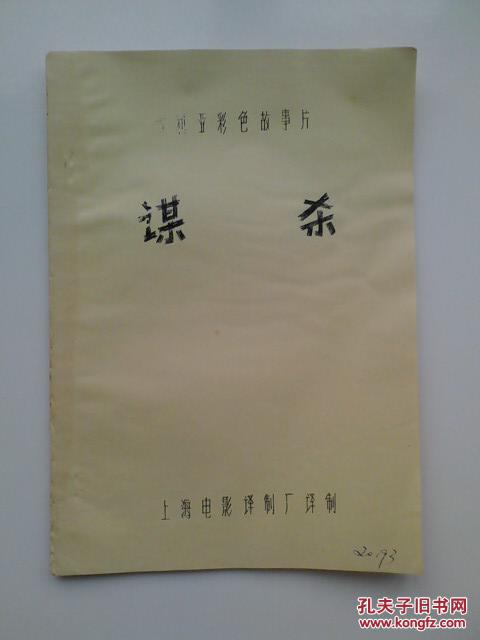 亚彩色故事片
谋 杀
上海电影译制厂译制
20.93
孔夫子旧书网
www.kongfz.com